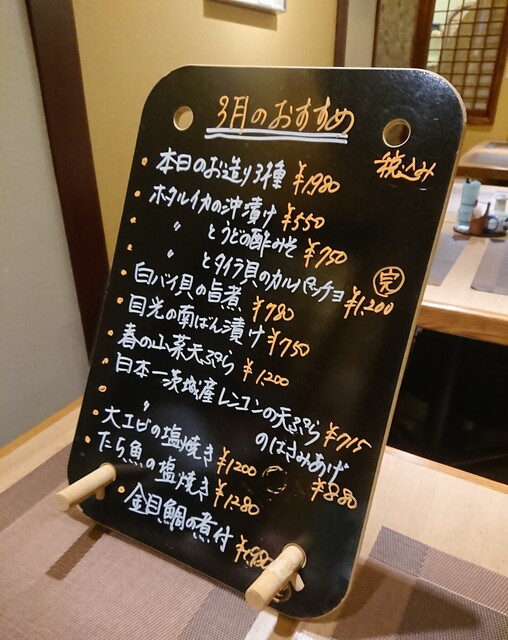 3月のおすすめ
税込み
・本日のお造り3種 ¥1,980
・ホタルイカの沖漬け ¥550
・〃 とうどの酢みそ ¥750
・〃 とタイラ貝のカルパッチョ ¥1,200 完
・白バイ貝の旨煮 ¥780
・目光の南ばん漬け ¥750
・春の山菜天ぷら ¥1,200
・日本一茨城産レンコンの天ぷら ¥715
・〃 のはさみあげ ¥880
・大エビの塩焼き ¥1200
・たら魚の塩焼き ¥1,280
・金目鯛の煮付